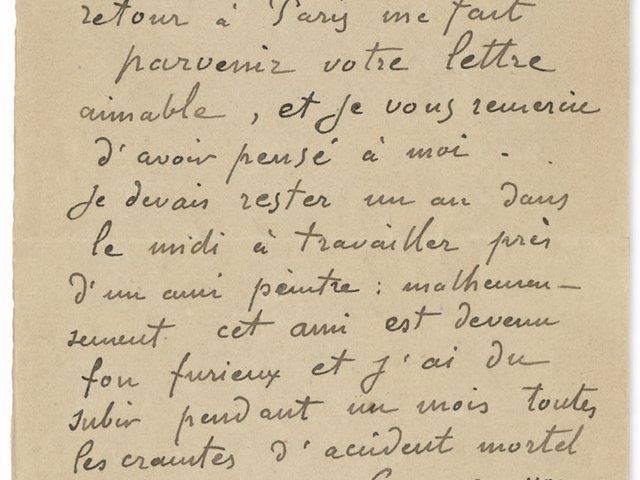 retour à Paris me fait
parvenir votre lettre
aimable, et je vous remercie
d'avoir pensé à moi.
Je devais rester un an dans
le midi à travailler près
d'un ami peintre : malheureu-
sement cet ami est devenu
fou furieux et j'ai du
subir pendant un mois toutes
les craintes d'accident mortel